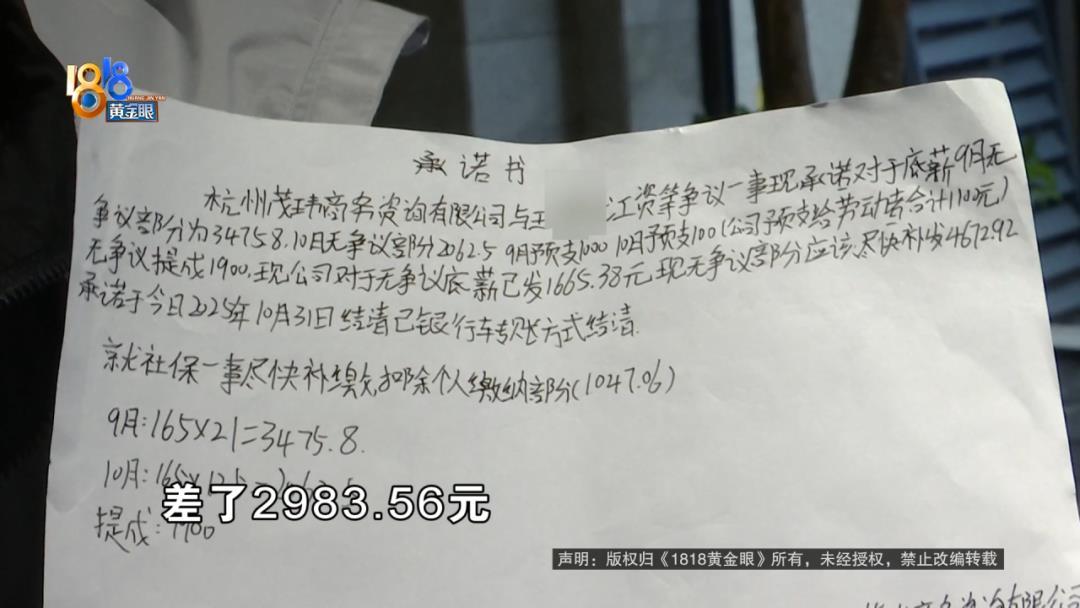 1818
黄金眼
承诺书
杭州茂玮商务资询有限公司与王 江资等争议一事现承诺对于底薪9月无
争议部分为3475.8.10月无争议部分2062.5 9月预支1000 10月预支100(公司预支给劳动者合计1100元)
无争议提成1900.现公司对于无争议底薪已发1665.38元.现无争议部分应该尽快补发4672.92
承诺于今日2025年10月31日结清已银行车专账方式结清.
就社保一事尽快补缴,扣除个人缴纳部分(1047.06)
9月:165×21=3475.8.
10月:165×12.5
提成:1900
差了2983.56元
声明:版权归《1818黄金眼》所有,未经授权,禁止改编转载